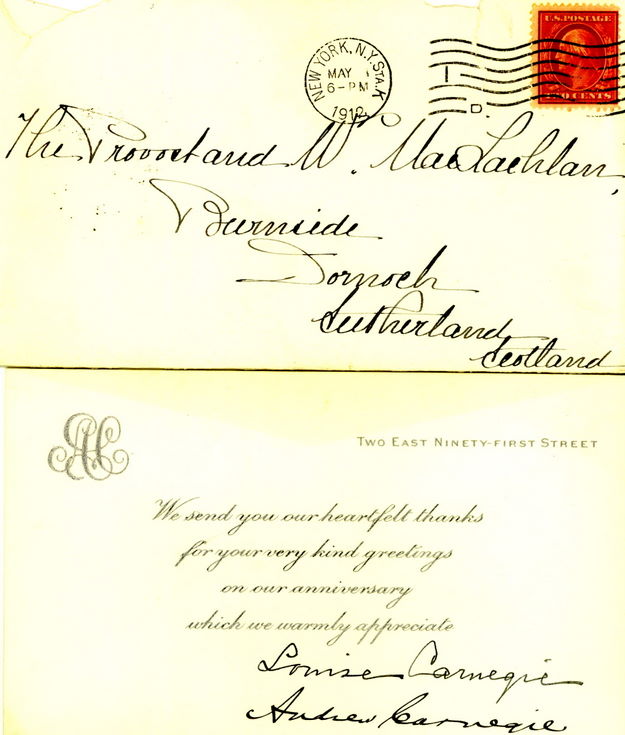 U.S. POSTAGE
TWO CENTS
NEW YORK, N.Y. STA. K
MAY 1
6-PM
1912
1
D
The Provost and MacLachlan,
Burnside
Dornoch
Sutherland
Scotland
TWO EAST NINETY-FIRST STREET
We send you our heartfelt thanks
for your very kind greetings
on our anniversary
which we warmly appreciate
Louise Carnegie
Andrew Carnegie